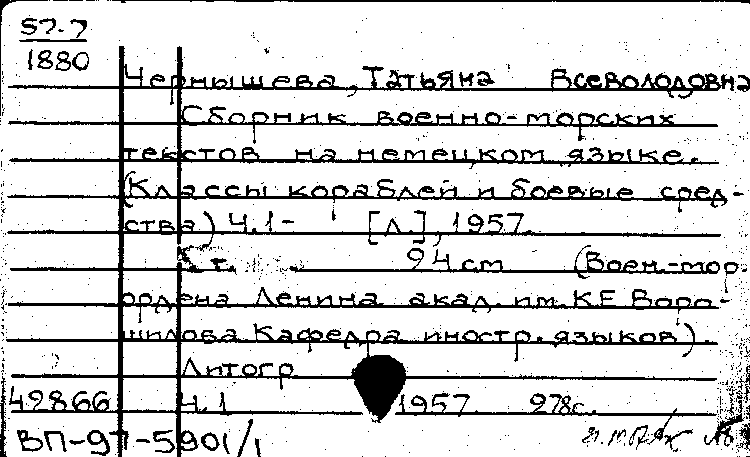 57-7
1880
Чернышева, Татьяна Всеволодовна
Сборник военно-морских
текстов на немецком языке.
(Классы кораблей и боевые сред-
ства) Ч.1- [Л.], 1957.
т. 24 см (Воен.-мор.
ордена Ленина акад. им. К Е Воро-
шилова Кафедра иностр. языков).
Литогр
49866 Ч.1 1957 278с.
ВП-97-5901/1